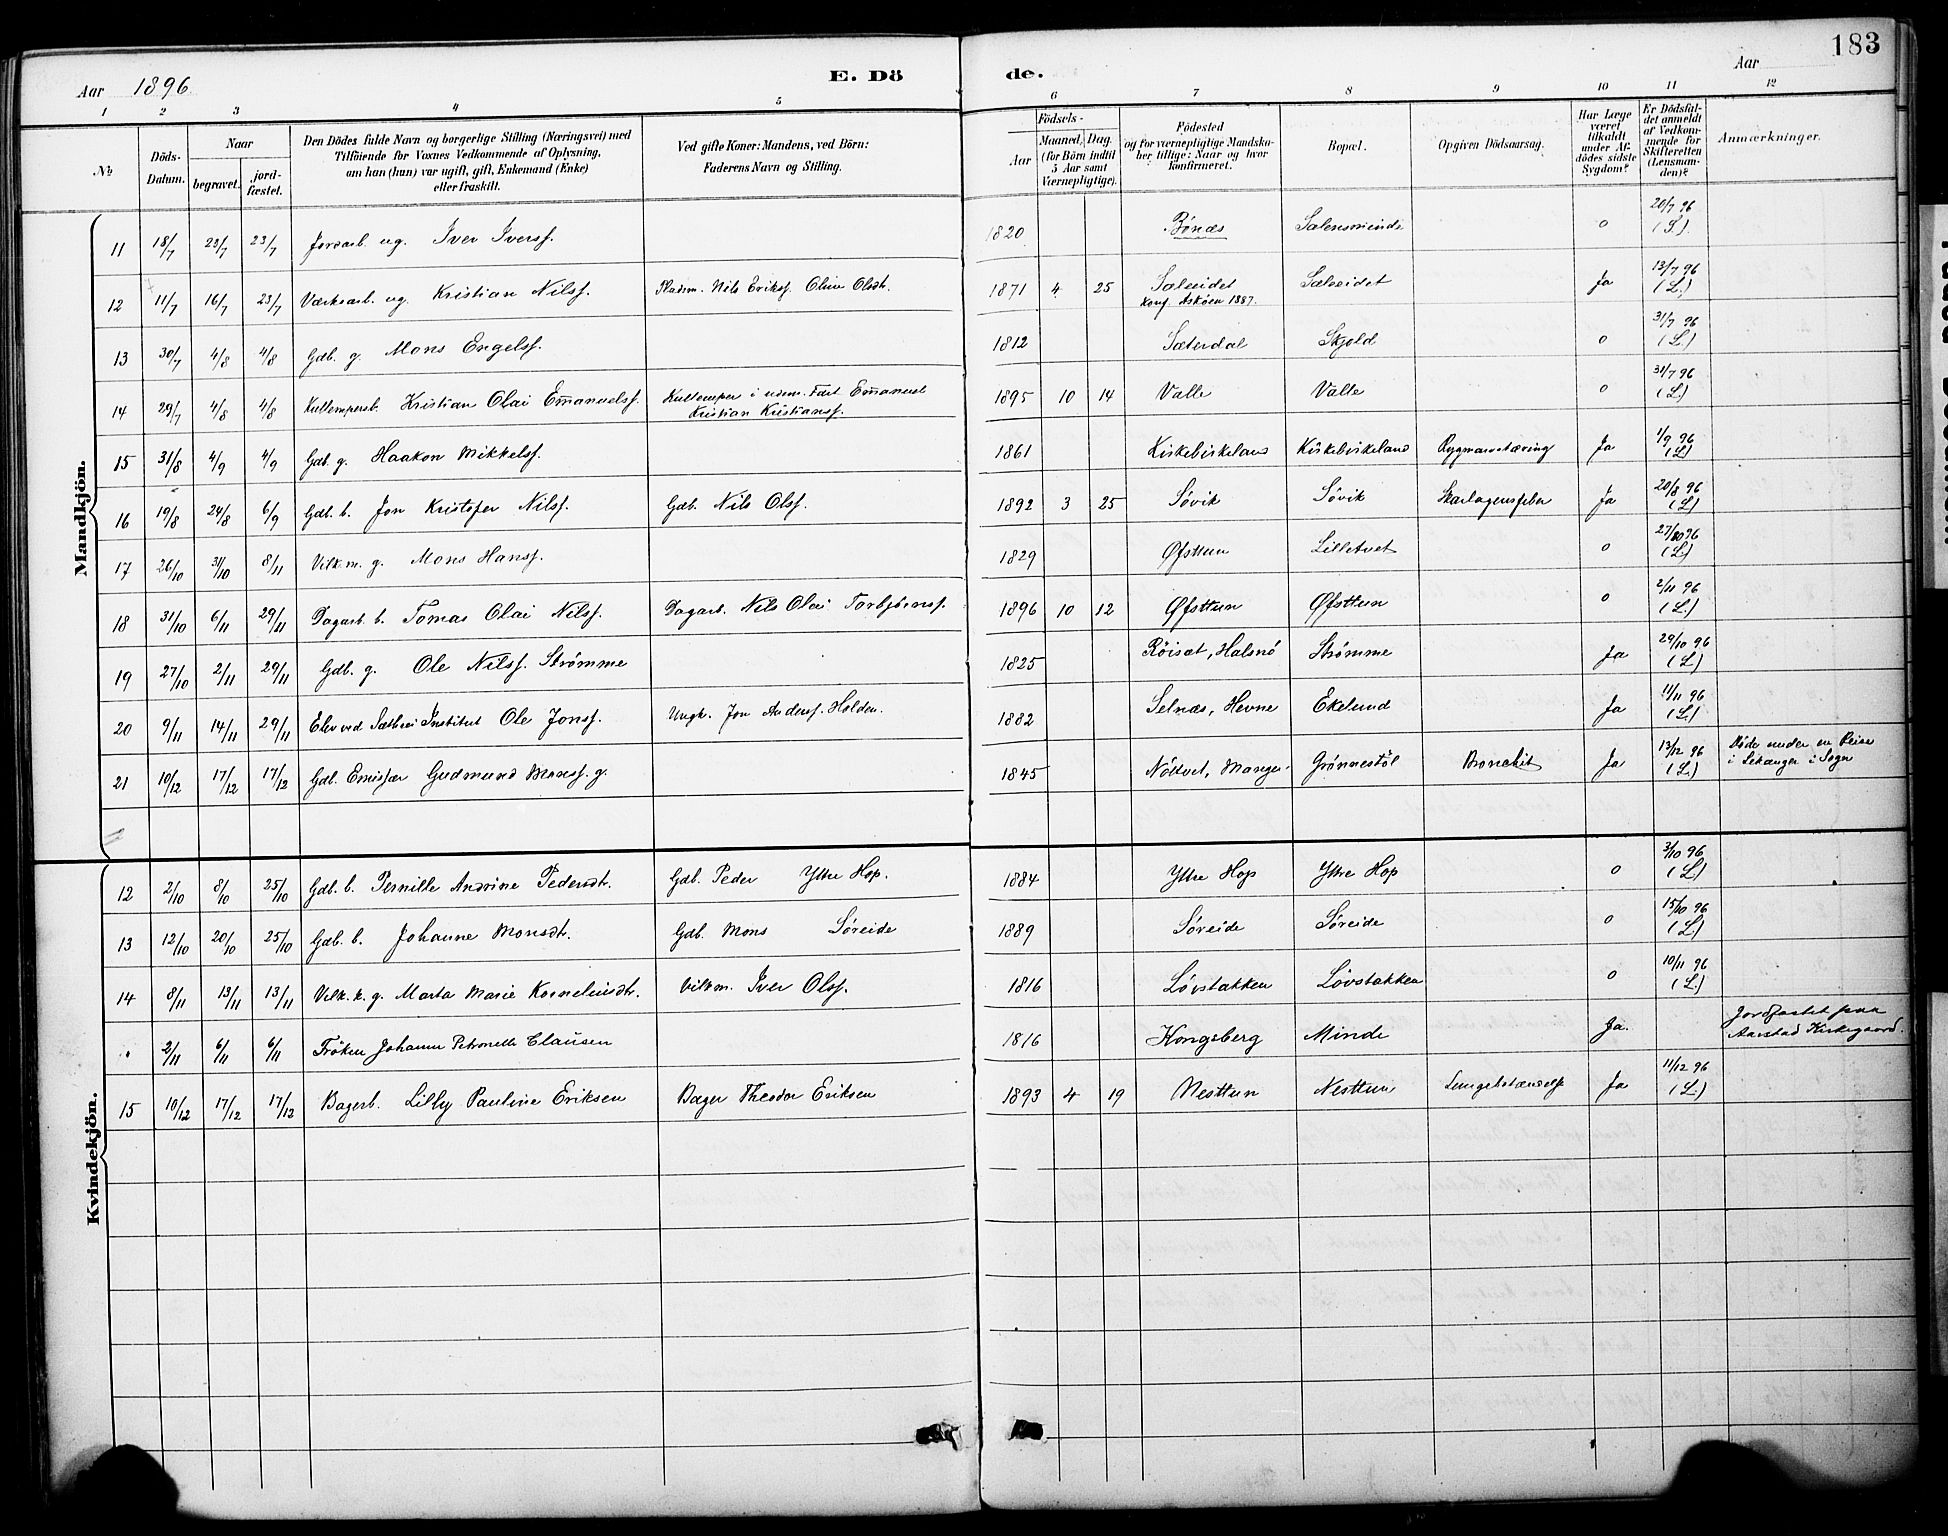 183
Aar 1896
E. Dö de.
Aar
1 2 3 4 5 6 7 8 9 10 11 12
№
Döds-Datum.
Naar
begravet.
jord-fæstet.
Den Dödes fulde Navn og borgerlige Stilling (Næringsvei) med
Tilföiende for Voxnes Vedkommende af Oplysning,
om han (hun) var ugift, gift, Enkemand (Enke)
eller fraskilt.
Ved gifte Koner: Mandens, ved Börn:
Faderens Navn og Stilling.
Födsels-
Aar
Maaned, Dag
(for Börn indtil
5 Aar samt
Værnepligtige).
Födested
og for værnepligtige Mandska-
ber tillige: Naar og hvor
konfirmeret.
Bopæl.
Opgiven Dödsaarsag.
Har Læge
været
tilkaldt
under Af-
dödes sidste
Sygdom?
Er Dödsfal-
det anmeldt
af Vedkom-
mende for
Skifteretten
(Lensman-
den)?
Anmærkninger.
Mandkjön.
11 18/7 23/7 23/7 Jordarb. ug. Iver Iversf. 1820 Bønæs o 20/7 96 (L).
12 11/7 16/7 23/7 Værksarb. ug. Kristian Nilsf. Pladsm. Nils Eriksf. Oline Olsdt. 1871 4 25 Sælseidet Sælseidet Ja 13/7 96 (L.)
Konf. Askøen 1887.
13 30/7 4/8 4/8 Gdb. g. Mons Engelsf. 1812 Sæterdal Skjold o 31/7 96 (L.)
14 29/7 4/8 4/8 Kristian Olai Emanuelsf. i udenr. Fart Emanuel 1895 10 14 Valle Valle o 31/7 96 (L)
Kristian Kristiansf.
15 31/8 4/9 4/9 Gdb. g. Haakon Mikkelsf. 1861 Kirkebirkeland Kirkebirkeland Rygmarvstæring Ja 1/9 96 (L)
16 19/8 24/8 6/9 Gdb. b. Jon Kristofer Nilsf. Gdb. Nils Olsf. 1892 3 25 Søvik Søvik Skarlagensfeber Ja 20/8 96 (L)
17 26/10 31/10 8/11 Vilk.m. g. Mons Hansf. 1829 Øfsttun Lilletvet o 27/10 96 (L)
18 31/10 6/11 29/11 Dagarb. b. Tomas Olai Nilsf. Dagarb. Nils Olai Torbjörnsf. 1896 10 12 Øfsttun Øfsttun o 2/11 96 (L.)
19 27/10 2/11 29/11 Gdb. g. Ole Nilsf. Strømme 1825 Röisæt, Halsnö Strømme Ja 29/10 96 (L)
20 9/11 14/11 29/11 Elev ved Institut Ole Jonsf. Ungk. Jon Andersf. Holden. 1882 Selnæs, Hevne Ekelund Ja 11/11 96 (L.)
21 10/12 17/12 17/12 Gdb. Emisfær Gudmund Monsf. g. 1845 Nöttvet, Manger Grönnestöl Bronchit Ja 13/12 96 (L) Døde under en Reise
i Lekanger i Sogn
Kvindekjön.
12 2/10 8/10 25/10 Gdb. b. Pernille Andrine Pedersdtr. Gdb. Peder Yttre Hop. 1884 Yttre Hop Yttre Hop o 3/10 96 (L)
13 12/10 20/10 25/10 Gdb. b. Johanne Monsdtr. Gdb. Mons Søreide 1889 Søreide Søreide o 15/10 96 (L)
14 8/11 13/11 13/11 Vilk. k. g. Marta Marie Korneliusdtr. Vilkm. Iver Olsf. 1816 Løvstakken Løvstakken o 10/11 96 (L.)
2/11 6/11 6/11 Frøken Johanne Petronelle Clausen 1816 Kongsberg Minde Ja. Jordfæstet paa
Aarstad Kirkegaard.
15 10/12 17/12 17/12 Bagerb. Lilly Pauline Eriksen Bager Theodor Eriksen 1893 4 19 Nesttun Nesttun Lungebetændelse Ja 11/12 96 (L)